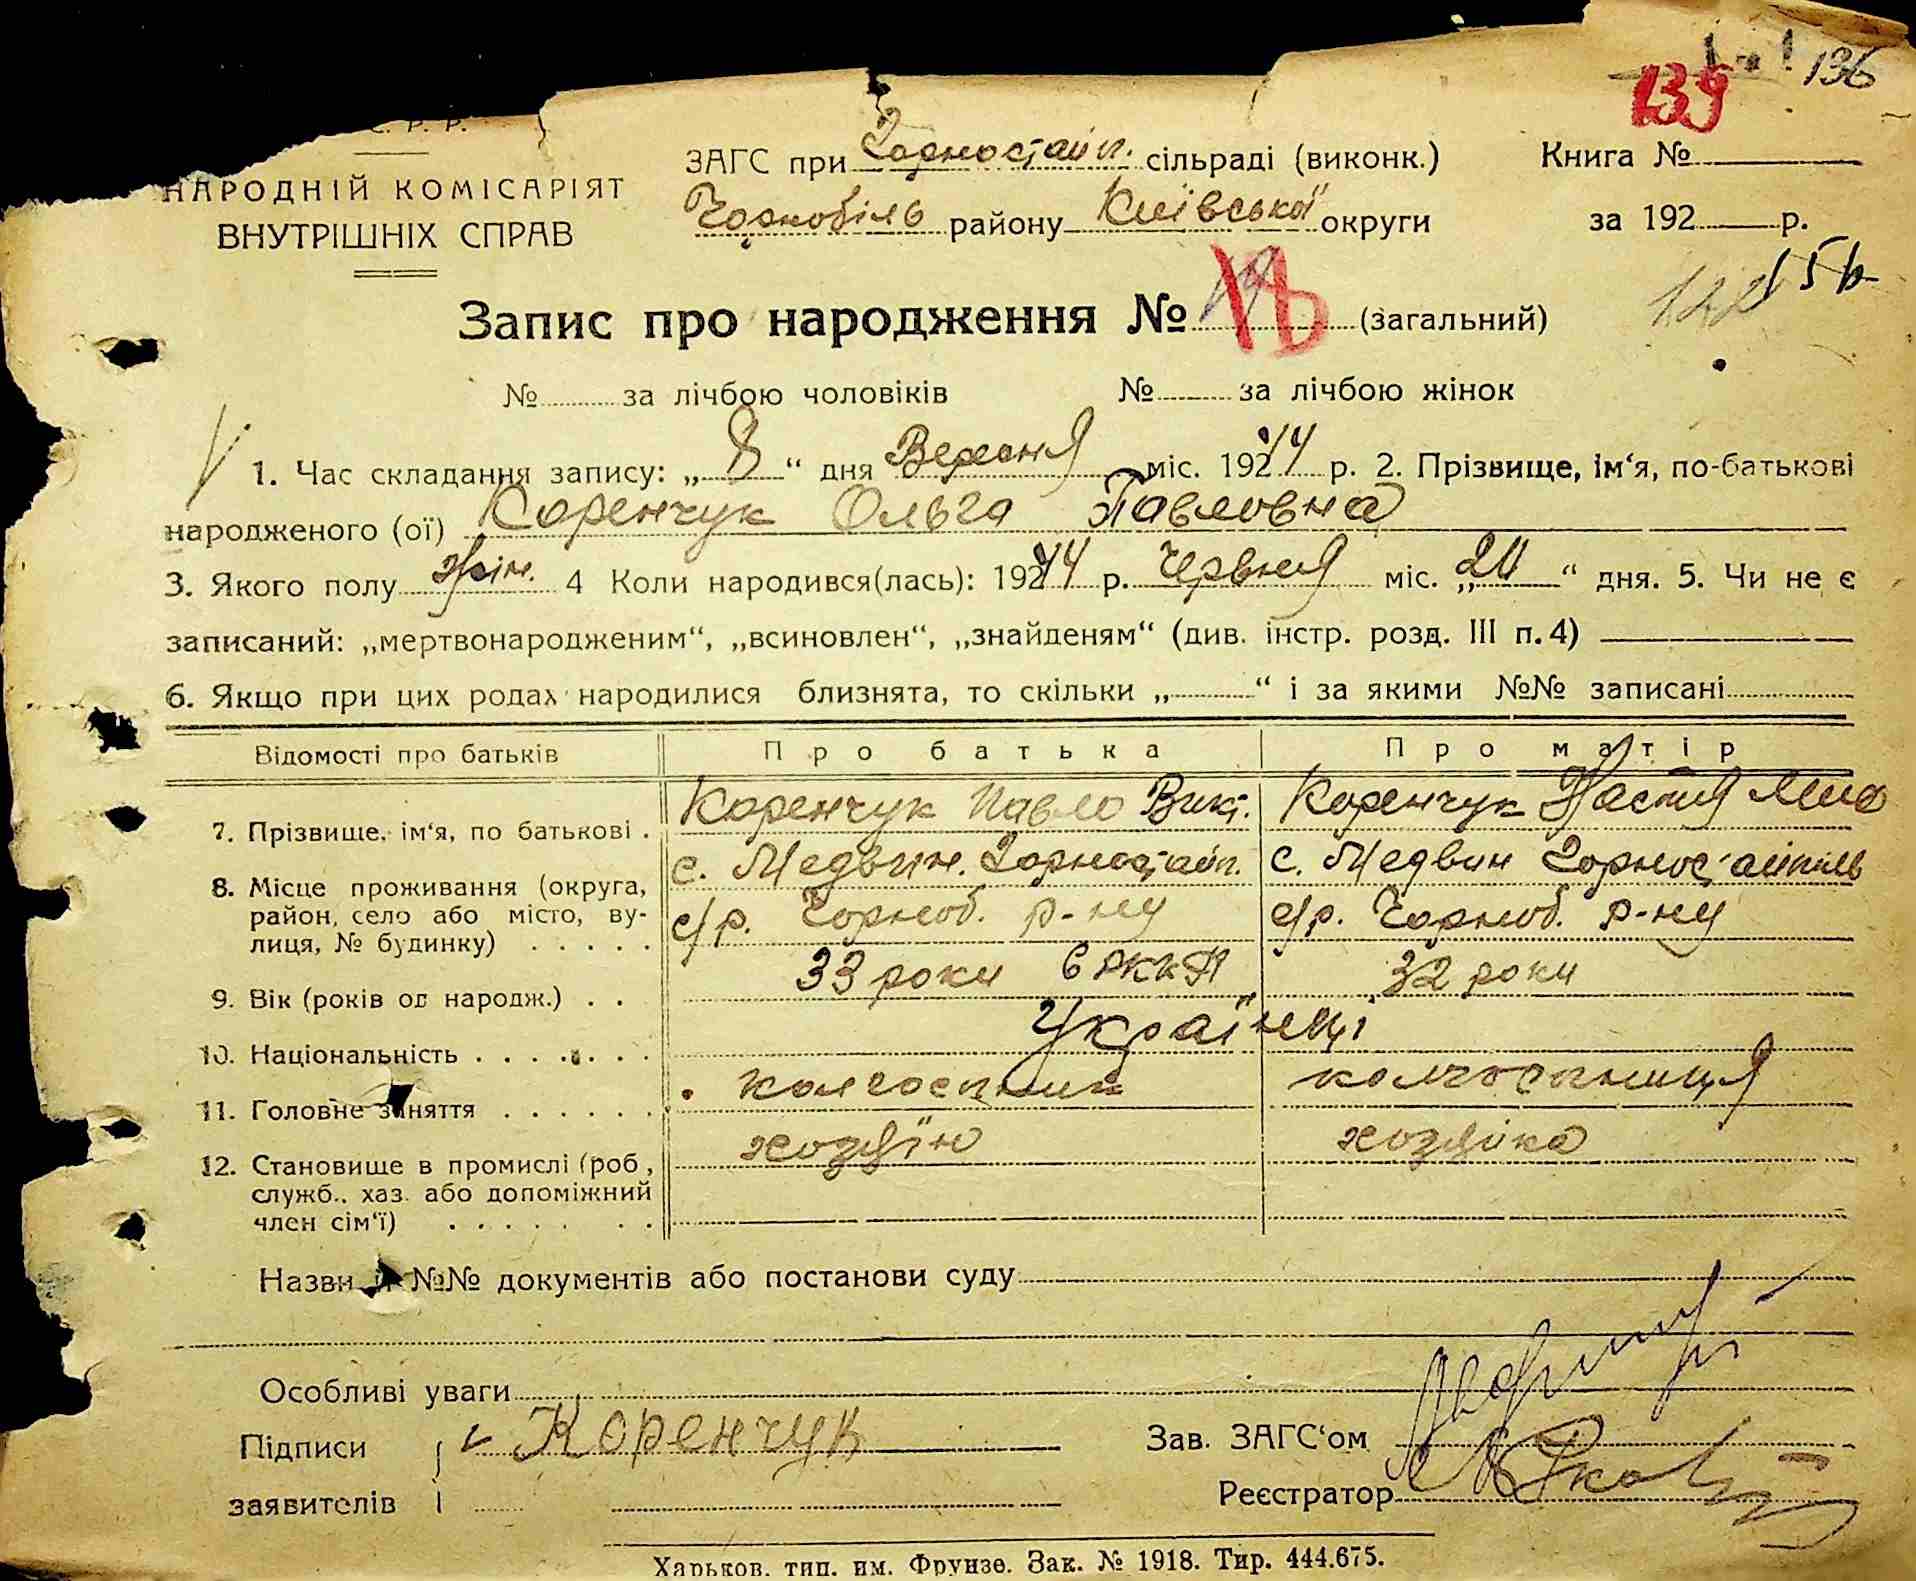 136
139
С. Р. Р.
НАРОДНІЙ КОМІСАРІЯТ
ВНУТРІШНІХ СПРАВ
ЗАГС при Горностайп. сільраді (виконк.)
Книга №
Чорнобіль району Київської округи
за 192 р.
Запис про народження № 18 (загальний)
156
№ за лічбою чоловіків № за лічбою жінок
1. Час складання запису: „ 8 “ дня Вересня міс. 1924 44 р. 2. Прізвище, ім‘я, по-батькові
народженого (ої) Коренчук Ольга Павловна
3. Якого полу жін. 4 Коли народився(лась): 192 44 р. Червня міс. „ 20 “ дня. 5. Чи не є
записаний: „мертвонародженим“, „всиновлен“, „знайденям“ (див. інстр. розд. III п. 4)
6. Якщо при цих родах народилися близнята, то скільки „ “ і за якими №№ записані
Відомості про батьків Про батька Про матір
7. Прізвище, ім‘я, по батькові . Коренчук Павло Викт. Коренчук Настя
8. Місце проживання (округа, с. Медвин. Горностайп. с. Медвин Горностайпіль
район, село або місто, ву- с/р. Чорноб. р-ну с/р. Чорноб. р-ну
лиця, № будинку)
9. Вік (років од народж.) . . 33 роки в РККА 32 роки
10. Національність Українці
11. Головне заняття колгоспник колгоспниця
12. Становище в промислі (роб, хозяїн хозяйка
служб., хаз. або допоміжний
член сім‘ї)
Назви і №№ документів або постанови суду
Особливі уваги
Підписи Коренчук
Зав. ЗАГС‘ом
заявителів
Реєстратор
Харьков. тип. им. Фрунзе. Зак. № 1918. Тир. 444.675.